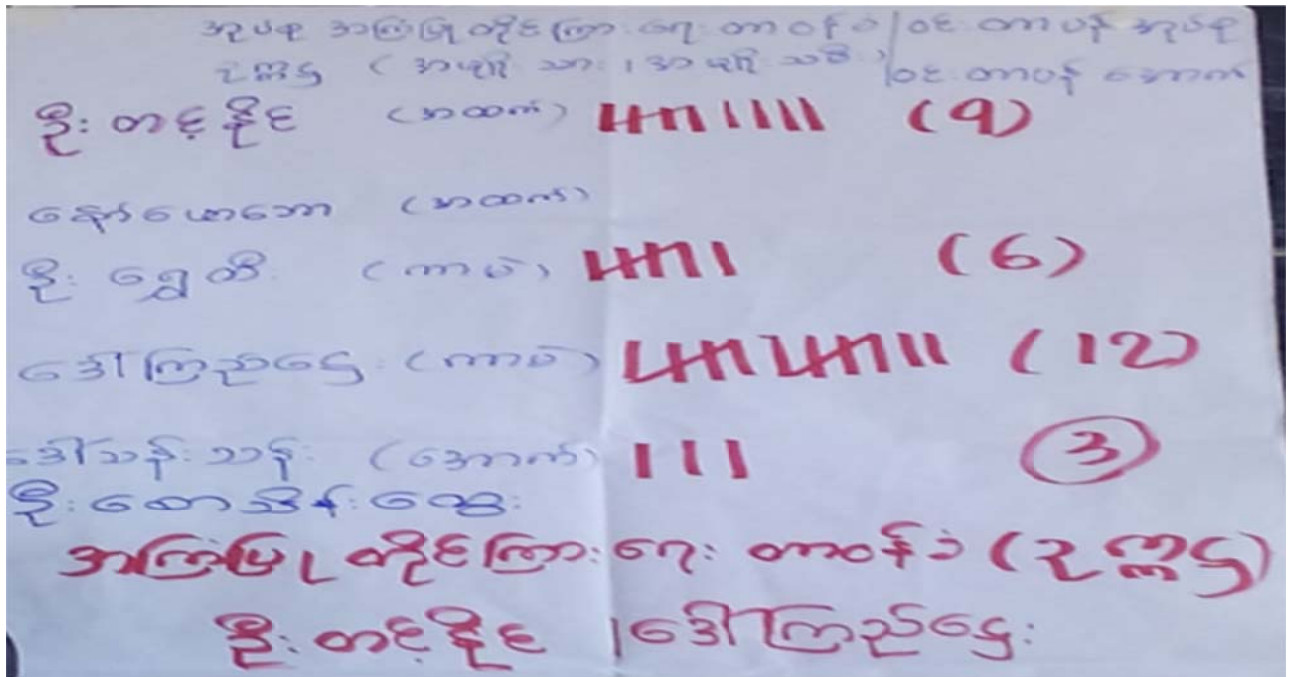 အုပ်စု အကြံပြုတိုင်ကြားရေး တာဝန်ခံ / ဝင်းတာပန် အုပ်စု
ဥက္ကဋ္ဌ ( အမျိုးသား ၊ အမျိုးသမီး ) / ဝင်းတာပန် အောက်
ဦးတင့်နိုင် (အထက်) (9)
နော်ယောဘော (အထက်)
ဦးရွှေတီ (ကာမဲ) (6)
ဒေါ်ကြည်ဌေး (ကာမဲ) (12)
ဒေါ်သန်းသန်း (အောက်) 3
ဦးစောသိန်းဆွေး
အကြံပြုတိုင်ကြားရေး တာဝန်ခံ (ဥက္ကဋ္ဌ)
ဦးတင့်နိုင် / ဒေါ်ကြည်ဌေး